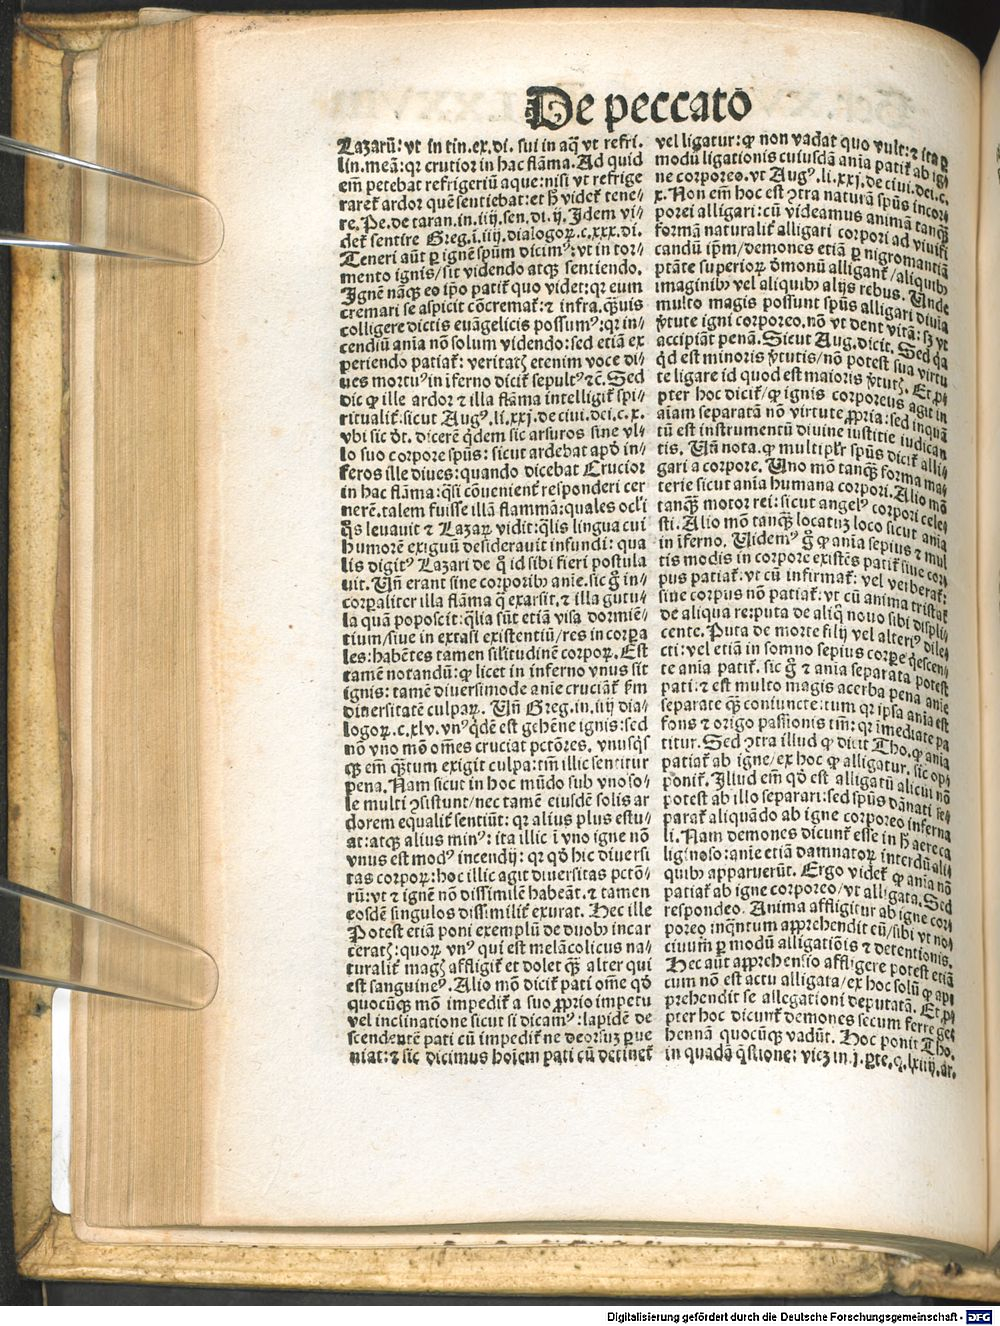 De peccato
Lazarū: vt in tin. ex. di. sui in aq̄ vt refri-
lin. meā: qr crutior in hac flāma. Ad quid
em̄ petebat refrigeriū aque: nisi vt refrige
raret᷑ ardor quē sentiebat: et h̄ videt᷑ tene-
re. Pe. de taran. in. iiij. sen. di. ij. Idem vi-
det᷑ sentire Greg. ī. iiij. dialogoꝝ. c. xxx. di.
Teneri aūt ꝑ ignē spūm dicimꝰ: vt in tor-
mento ignis/ sit videndo atqꝫ sentiendo.
Ignē nāqꝫ eo ip̄o patit᷑ quo videt: qr eum
cremari se aspicit cōcremat᷑: ⁊ infra. qꝫuis
colligere dictis euāgelicis possumꝰ: qr in-
cendiū aīa nō solum videndo: sed etiā ex
periendo patiat᷑: veritatꝭ etenim voce di-
ues mortuꝰ in īferno dicit᷑ sepultꝰ ⁊c̄. Sed
dic ꝙ ille ardor ⁊ illa flāma intelligit᷑ spi-
ritualit᷑. sicut Augꝰ. li. xxj. de ciui. dei. c. x.
vbi sic d̄t. dicerē q̄dem sic arsuros sine vl-
lo suo corpore spūs: sicut ardebat apd̄ in-
feros ille diues: quando dicebat Crucior
in hac flāma: q̄si cōuenient᷑ responderi cer
nerē. talem fuisse illā flammā: quales ocl̓i
q̄s leuauit ⁊ Lazaꝝ vidit: q̄lis lingua cui
humorē exiguū desiderauit infundi: qua
lis digitꝰ Lazari de q̄ id sibi fieri postula
uit. Vn̄ erant sine corporibꝰ aīe. sic g̊ in-
corꝑaliter illa flāma q̄ exarsit. ⁊ illa gutu-
la quā poposcit: q̄lia sūt etiā visa dormiē-
tium/ siue in extasi existentiū/ res in corꝑa
les: habētes tamen sil̓itudinē corpoꝝ. Est
tamē notandū: ꝙ licet in inferno vnus sit
ignis: tamē diuersimode aīe cruciāt᷑ s̄m
diuersitatē culpaꝝ. Vn̄ Greg. in. iiij dia-
logoꝝ. c. xlv. vnꝰ q̄dē est gehēne ignis: sed
nō vno mō om̄es cruciat pctōres. vnusq̄s
qꝫ em̄ qꝫtum exigit culpa: tm̄ illic sentitur
pena. Nam sicut in hoc mūdo sub vno so-
le multi ꝯsistunt/ nec tamē eiusdē solis ar
dorem equalit᷑ sentiūt: qr alius plus estu-
at: atqꝫ alius minꝰ: ita illic ī vno igne nō
vnus est modꝰ incendij: qr qd̄ hic diuersi
tas corpoꝝ: hoc illic agit diuersitas pctō-
rū: vt ⁊ ignē nō dissimilē habeāt. ⁊ tamen
eosdē singulos dissimilit᷑ exurat. Hec ille
Potest etiā poni exemplū de duobꝰ incar
ceratꝭ: quoꝝ vnꝰ qui est melācolicus na-
turalit᷑ magꝭ affligit᷑ et dolet qꝫ alter qui
est sanguineꝰ. Alio mō dicit᷑ pati om̄e qd̄
quocūqꝫ mō impedit᷑ a suo ꝓprio impetu
vel inclinatione sicut si dicamꝰ: lapidē de
scendentē pati cū impedit᷑ ne deorsuꝫ ꝑue
niat: ⁊ sic dicimus hoīem pati cū detinet᷑
vel ligatur: ꝙ non vadat quo vult: ⁊ ita ꝑ
modū ligationis cuiusdā aīa patit᷑ ab ig-
ne corporeo. vt Augꝰ. li. xxj. de ciui. dei. c.
x. Non em̄ hoc est ꝯtra naturā spūs incor-
porei alligari: cū videamus animā tanqꝫ
formā naturalit᷑ alligari corpori ad viuifi
candū ip̄m/ demones etiā ꝑ nigromantiā
ptāte superioꝝ d̓monū alligant᷑/ aliquibꝰ
imaginibꝰ vel aliquibꝰ alijs rebus. Vnde
multo magis possunt spūs alligari diuīa
v̓tute igni corporeo. nō vt dent vitā: sꝫ vt
accipiāt penā. Sicut Aug. dicit. Sed q̄a
q̄d est minoris v̓tutis/ nō potest sua virtu
te ligare id quod est maioris v̓tutꝭ. Et ꝓ-
pter hoc dicit᷑/ ꝙ ignis corporeus agit in
aīam separatā nō virtute ꝓpria: sed inquā
tū est instrumentū diuine iustitie iudican
tis. Vn̄ nota. ꝙ multiplr̄ spūs dicit᷑ alli-
gari a corpore. Uno mō tanqꝫ forma ma-
terie sicut aīa humana corpori. Alio mō
tanqꝫ motor rei: sicut angelꝰ corpori cele-
sti. Alio mō tanqꝫ locatuꝫ loco sicut aīa
in īferno. Videmꝰ g̊ ꝙ aīa sepius ⁊ mul
tis modis in corpore existēs patit᷑ siue cor-
pus patiat᷑: vt cū infirmat᷑: vel verberat᷑:
siue corpus nō patiat᷑: vt cū anima tristat᷑
de aliqua re: puta de aliq̄ nouo sibi displi-
cente. Puta de morte filij vel alteriꝰ dile-
cti: vel etiā in somno sepius corꝑe q̄escen-
te aīa patit᷑. sic g̊ ⁊ aīa separata potest
pati: ⁊ est multo magis acerba pena aīe
separate qꝫ coniuncte: tum qr ipsa aīa est
fons ⁊ origo passionis tm̄: qr īmediate pa
titur. Sed ꝯtra illud ꝙ dicit Tho. ꝙ aīa
patiat᷑ ab igne/ ex hoc ꝙ alligatur. sic op-
ponit᷑. Illud em̄ qd̄ est alligatū alicui nō
potest ab illo separari: sed spūs dānati se-
parat᷑ aliquādo ab igne corporeo inferna
li. Nam demones dicunt᷑ esse in h̄ aere ca
liginoso: aīe etiā damnatoꝝ interdū ali-
quibꝰ apparuerūt. Ergo videt᷑ ꝙ aīa nō
patiat᷑ ab igne corporeo/ vt alligata. Sed
respondeo. Anima affligitur ab igne cor-
poreo: inq̄ntum apprehendit eū/ sibi vt no-
ciuum ꝑ modū alligatiōis ⁊ detentionis.
Hec aūt apprehensio affligere potest etiā
cum nō est actu alligata/ ex hoc solū ꝙ ap-
prehendit se allegationi deputatā. Et ꝓ-
pter hoc dicunt᷑ demones secum ferre ge-
hennā quocūqꝫ vadūt. Hoc ponit Tho.
in quadā q̄stione: vicꝫ in. j. ꝑte. q. lxiiij. ar.
Digitalisierung gefördert durch die Deutsche Forschungsgemeinschaft - DFG